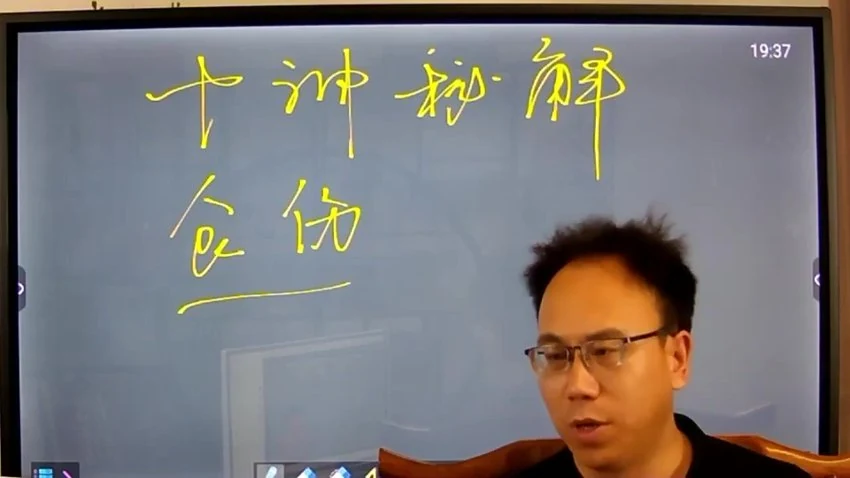 19:37
十神秘解
食伤